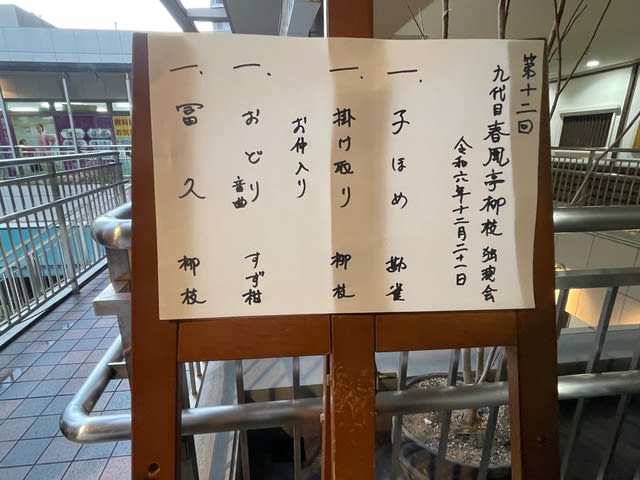 第十二回
九代目春風亭柳枝 独演会
令和六年十二月二十一日
一、子ほめ 枝雀
一、掛け取り 柳枝
お仲入り
一、おどり 音曲 すず柑
一、冨久 柳枝